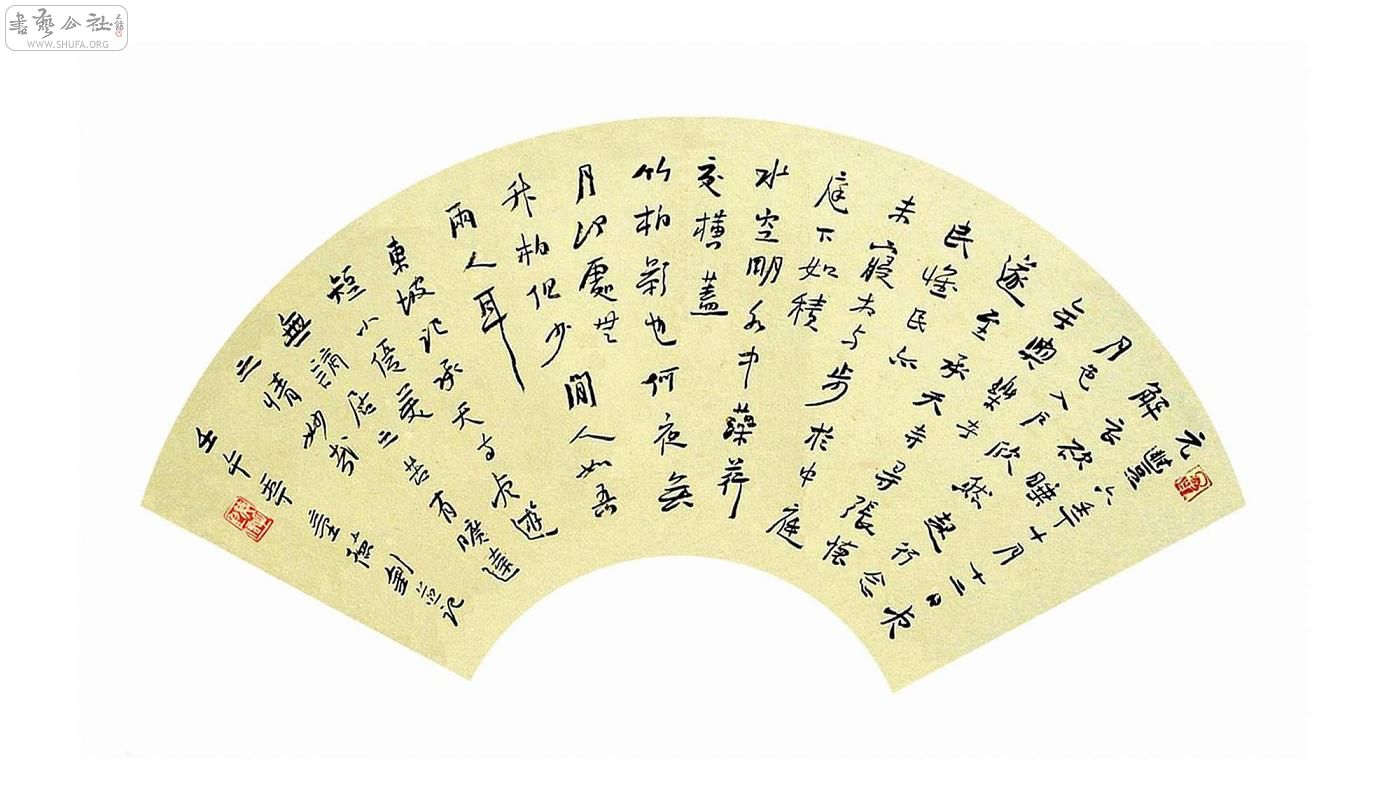 元豐六年十月十二日夜
解衣欲睡
月色入户欣然起行念
無與樂者
遂至承天寺尋張懷
民懷民亦
未寢相与步於中庭
庭下如積
水空明水中藻荇
交橫蓋
竹柏影也何夜無
月何處無閒人如吾
竹柏但少
兩人耳
東坡記承天寺夜遊
短小優美
無謫居之苦有曠達
之情妙哉
壬午年 並記
書藝公社
WWW.SHUFA.ORG